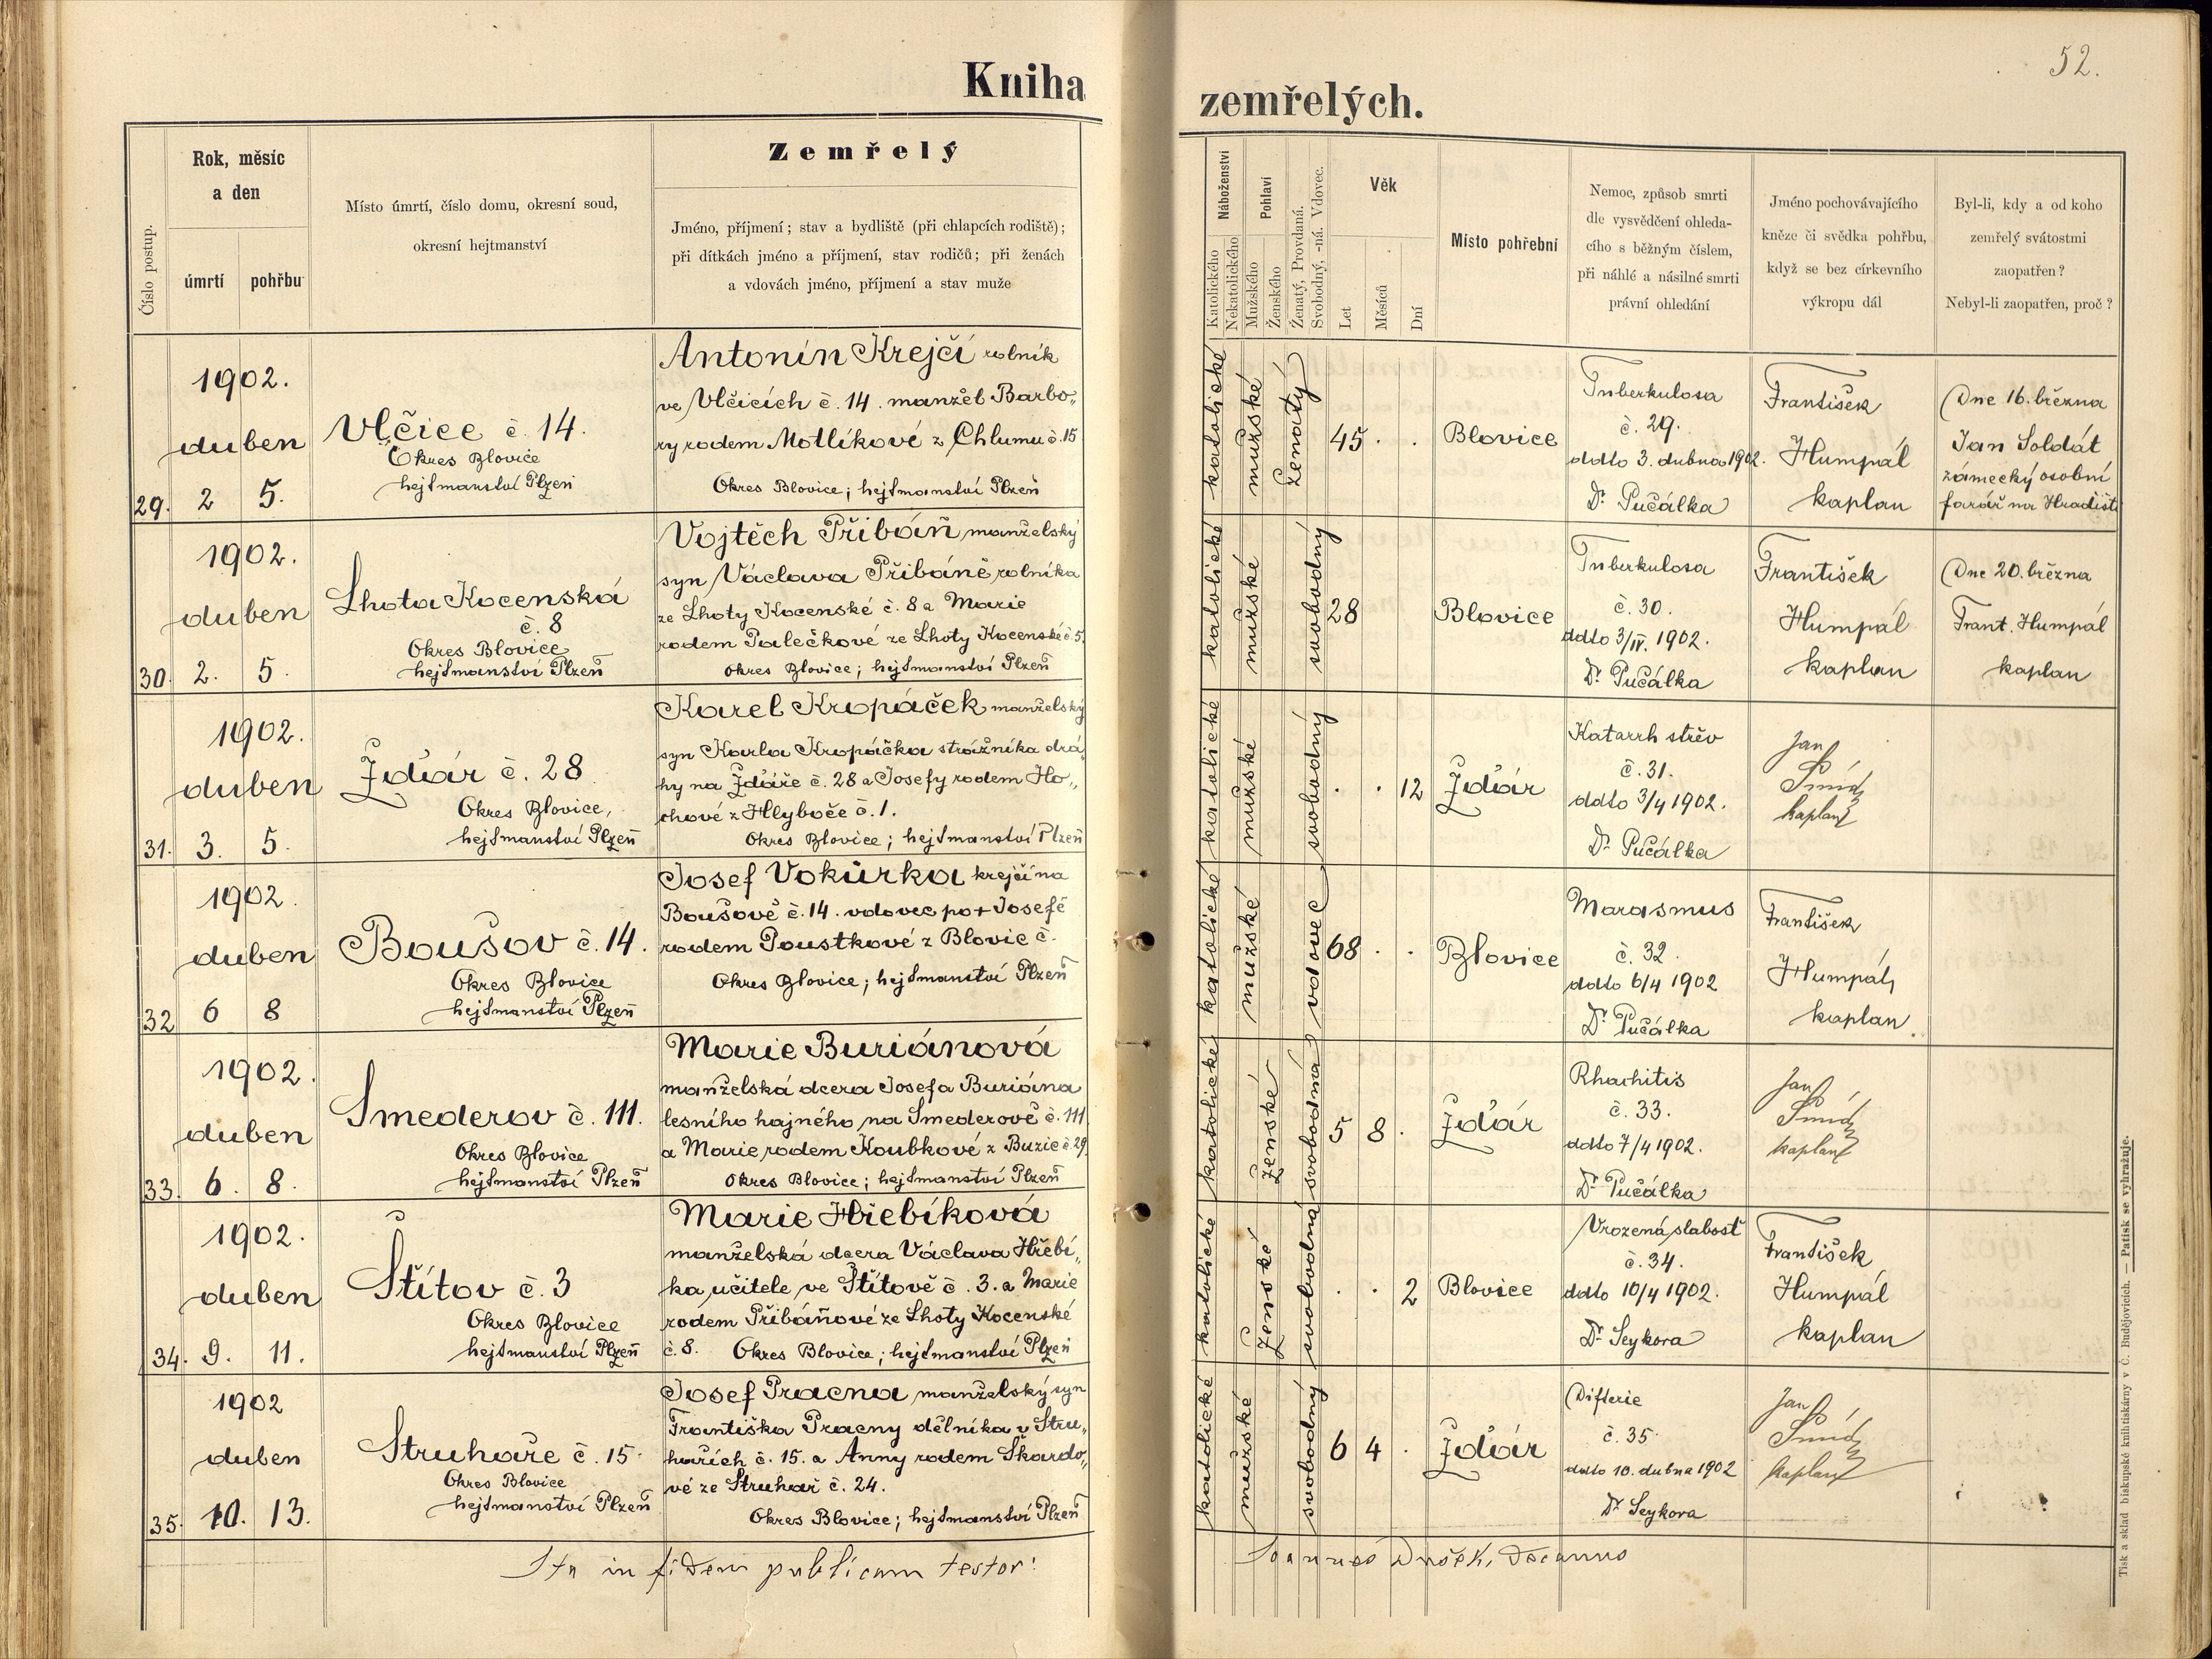 52.
Kniha zemřelých.
Číslo postup.
Rok, měsíc
a den
úmrtí
pohřbu
Místo úmrtí, číslo domu, okresní soud,
okresní hejtmanství
Zemřelý
Jméno, příjmení; stav a bydliště (při chlapcích rodiště);
při dítkách jméno a příjmení, stav rodičů; při ženách
a vdovách jméno, příjmení a stav muže
Náboženství
Katolického
Nekatolického
Pohlaví
Mužského
Ženského
Ženatý, Provdaná.
Svobodný, -ná. Vdovec.
Věk
Let
Měsíců
Dní
Místo pohřební
Nemoc, způsob smrti
dle vysvědčení ohleda-
cího s běžným číslem,
při náhlé a násilné smrti
právní ohledání
Jméno pochovávajícího
kněze či svědka pohřbu,
když se bez církevního
výkropu dál
Byl-li, kdy a od koho
zemřelý svátostmi
zaopatřen?
Nebyl-li zaopatřen, proč?
29.
1902.
duben
2 5.
Vlčice č. 14.
Okres Blovice
hejtmanství Plzeň
Antonín Krejčí rolník
ve Vlčicích č. 14. manžel Barbo„
ry rodem Motlíkové z Chlumu č. 15
Okres Blovice; hejtmanství Plzeň
katolické
mužské
ženatý
45 . .
Blovice
Tuberkulosa
č. 29.
ddto 3. dubna 1902.
Dr. Pučálka
František
Humpál
kaplan
Dne 16. března
Jan Soldát
zámecký osobní
farář na Hradišti
30.
1902.
duben
2. 5.
Lhota Kocenská
č. 8
Okres Blovice
hejtmanství Plzeň
Vojtěch Přibáň manželský
syn Václava Přibáně rolníka
ze Lhoty Kocenské č. 8 a Marie
rodem Palečkové ze Lhoty Kocenské č. 5.
okres Blovice; hejtmanství Plzeň
katolické
mužské
svobodný
28
Blovice
Tuberkulosa
č. 30.
ddto 3/IV. 1902.
Dr. Pučálka
František
Humpál
kaplan
Dne 20. března
Frant. Humpál
kaplan
31.
1902.
duben
3. 5.
Žďár č. 28
Okres Blovice,
hejtmanství Plzeň
Karel Kropáček manželský
syn Karla Kropáčka strážníka drá„
hy na Žďáře č. 28 a Josefy rodem Ho„
chové z Hlyboče č. 1.
Okres Blovice; hejtmanství Plzeň
katolické
mužské
svobodný
. . 12
Žďár
Katarrh střev
č. 31.
ddto 3/4 1902.
Dr. Pučálka
Jan
Šmíd
kaplan
32
1902.
duben
6 8
Boušov č. 14.
Okres Blovice
hejtmanství Plzeň
Josef Vokůrka krejčí na
Boušově č. 14. vdovec po + Josefě
rodem Poustkové z Blovic č.
Okres Blovice; hejtmanství Plzeň
katolické
mužské
vdovec
68 . .
Blovice
Marasmus
č. 32
ddto 6/4 1902
Dr. Pučálka
František
Humpál,
kaplan.
33.
1902.
duben
6. 8.
Smederov č. 111.
Okres Blovice
hejtmanství Plzeň
Marie Buriánová
manželská dcera Josefa Buriána
lesního hajného na Smederově č. 111
a Marie rodem Koubkové z Buzic č. 29.
Okres Blovice; hejtmanství Plzeň
katolické
ženské
svobodná
5 8 .
Žďár
Rhachitis
č. 33.
ddto 7/4 1902.
Dr. Pučálka
Jan
Šmíd
kaplan
34.
1902.
duben
9. 11.
Štítov č. 3
Okres Blovice
hejtmanství Plzeň
Marie Hřebíková
manželská dcera Václava Hřebí„
ka, učitele ve Štítově č. 3. a Marie
rodem Přibáňové ze Lhoty Kocenské
č. 8. Okres Blovice; hejtmanství Plzeň
katolické
ženské
svobodná
. . 2
Blovice
Vrozená slabosť
č. 34.
ddto 10/4 1902.
Dr. Seykora
František
Humpál
kaplan
35.
1902
duben
10. 13.
Struhaře č. 15.
Okres Blovice
hejtmanství Plzeň
Josef Pracna manželský syn
Františka Pracny dělníka v Stru„
hařích č. 15. a Anny rodem Škardo„
vé ze Struhař č. 24.
Okres Blovice; hejtmanství Plzeň
katolické
mužské
svobodný
6 4 .
Žďár
Difterie
č. 35.
ddto 10. dubna 1902
Dr. Seykora
Jan
Šmíd
kaplan
Ita in fidem publicam testor: Joannes Dušek, Decanus
Tisk a sklad biskupské knihtiskárny v Č. Budějovicích. — Patisk se vyhražuje.